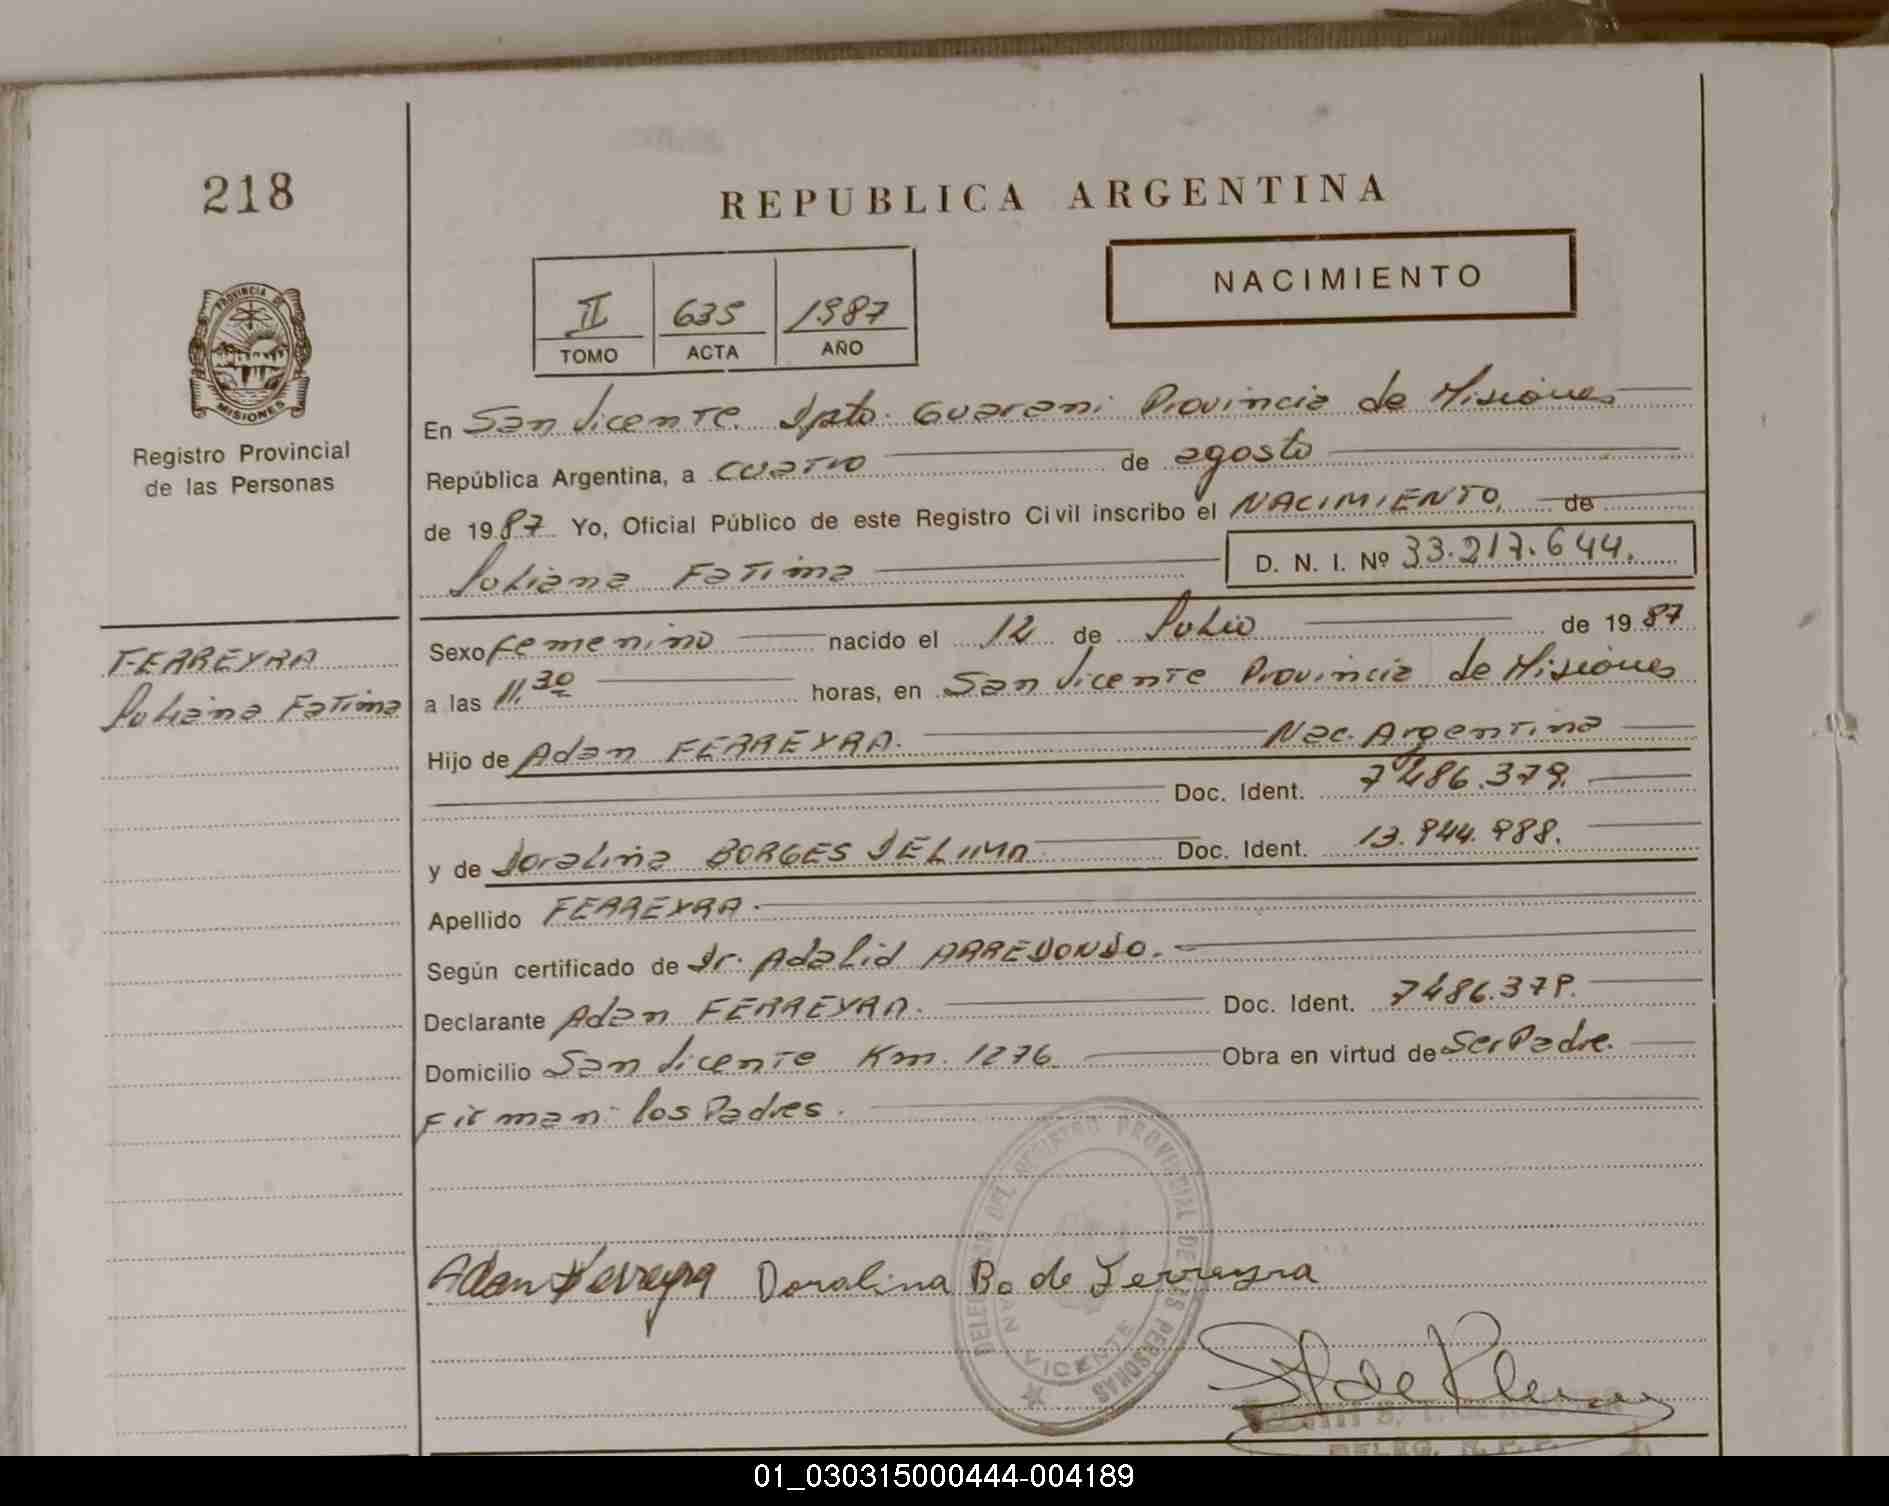 218
REPUBLICA ARGENTINA
NACIMIENTO
II 635 1987
TOMO ACTA AÑO
PROVINCIA DE
MISIONES
Registro Provincial
de las Personas
En San Vicente. Dpto. Guarani Provincia de Misiones
República Argentina, a cuatro de agosto
de 1987 Yo, Oficial Público de este Registro Civil inscribo el NACIMIENTO, de
Juliana Fatima D. N. I. Nº 33.217.644.
FERREYRA
Juliana Fatima
Sexo femenino nacido el 12 de Julio de 1987
a las 11,30 horas, en San Vicente Provincia de Misiones
Hijo de Adan FERREYRA. Nac. Argentina
Doc. Ident. 7486.379.
y de Doralina BORGES DELIMA Doc. Ident. 13.944.988.
Apellido FERREYRA.
Según certificado de Dr. Adalid ARREDONDO.
Declarante Adan FERREYRA. Doc. Ident. 7486.379.
Domicilio San Vicente Km. 1276. Obra en virtud de Ser Padre.
Firman: los Padres.
DELEG DEL REGISTRO PROVINCIAL DE LAS PERSONAS
VICENTE
Adan Ferreyra Doralina Bo de Ferreyra
DELEG. R. P. P.
01_030315000444-004189